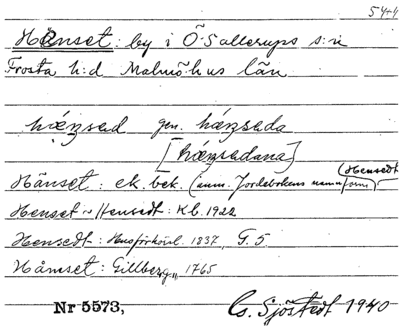 54+4
Hönset: by i Ö. Sallerups s:n
Frosta h:d Malmöhus län
hǽnsad gen. hǽnsada
[hǽnsadana]
(Hensedt
Hänset: ek. bek. (inm. Jordebokens namnform)
Henset ~ Hensedt: Kb. 1922
Hensedt: Husförhörsl. 1837, G. 5
Håmset: Gillberg, 1765
Nr 5573, G. Sjöstedt 1940